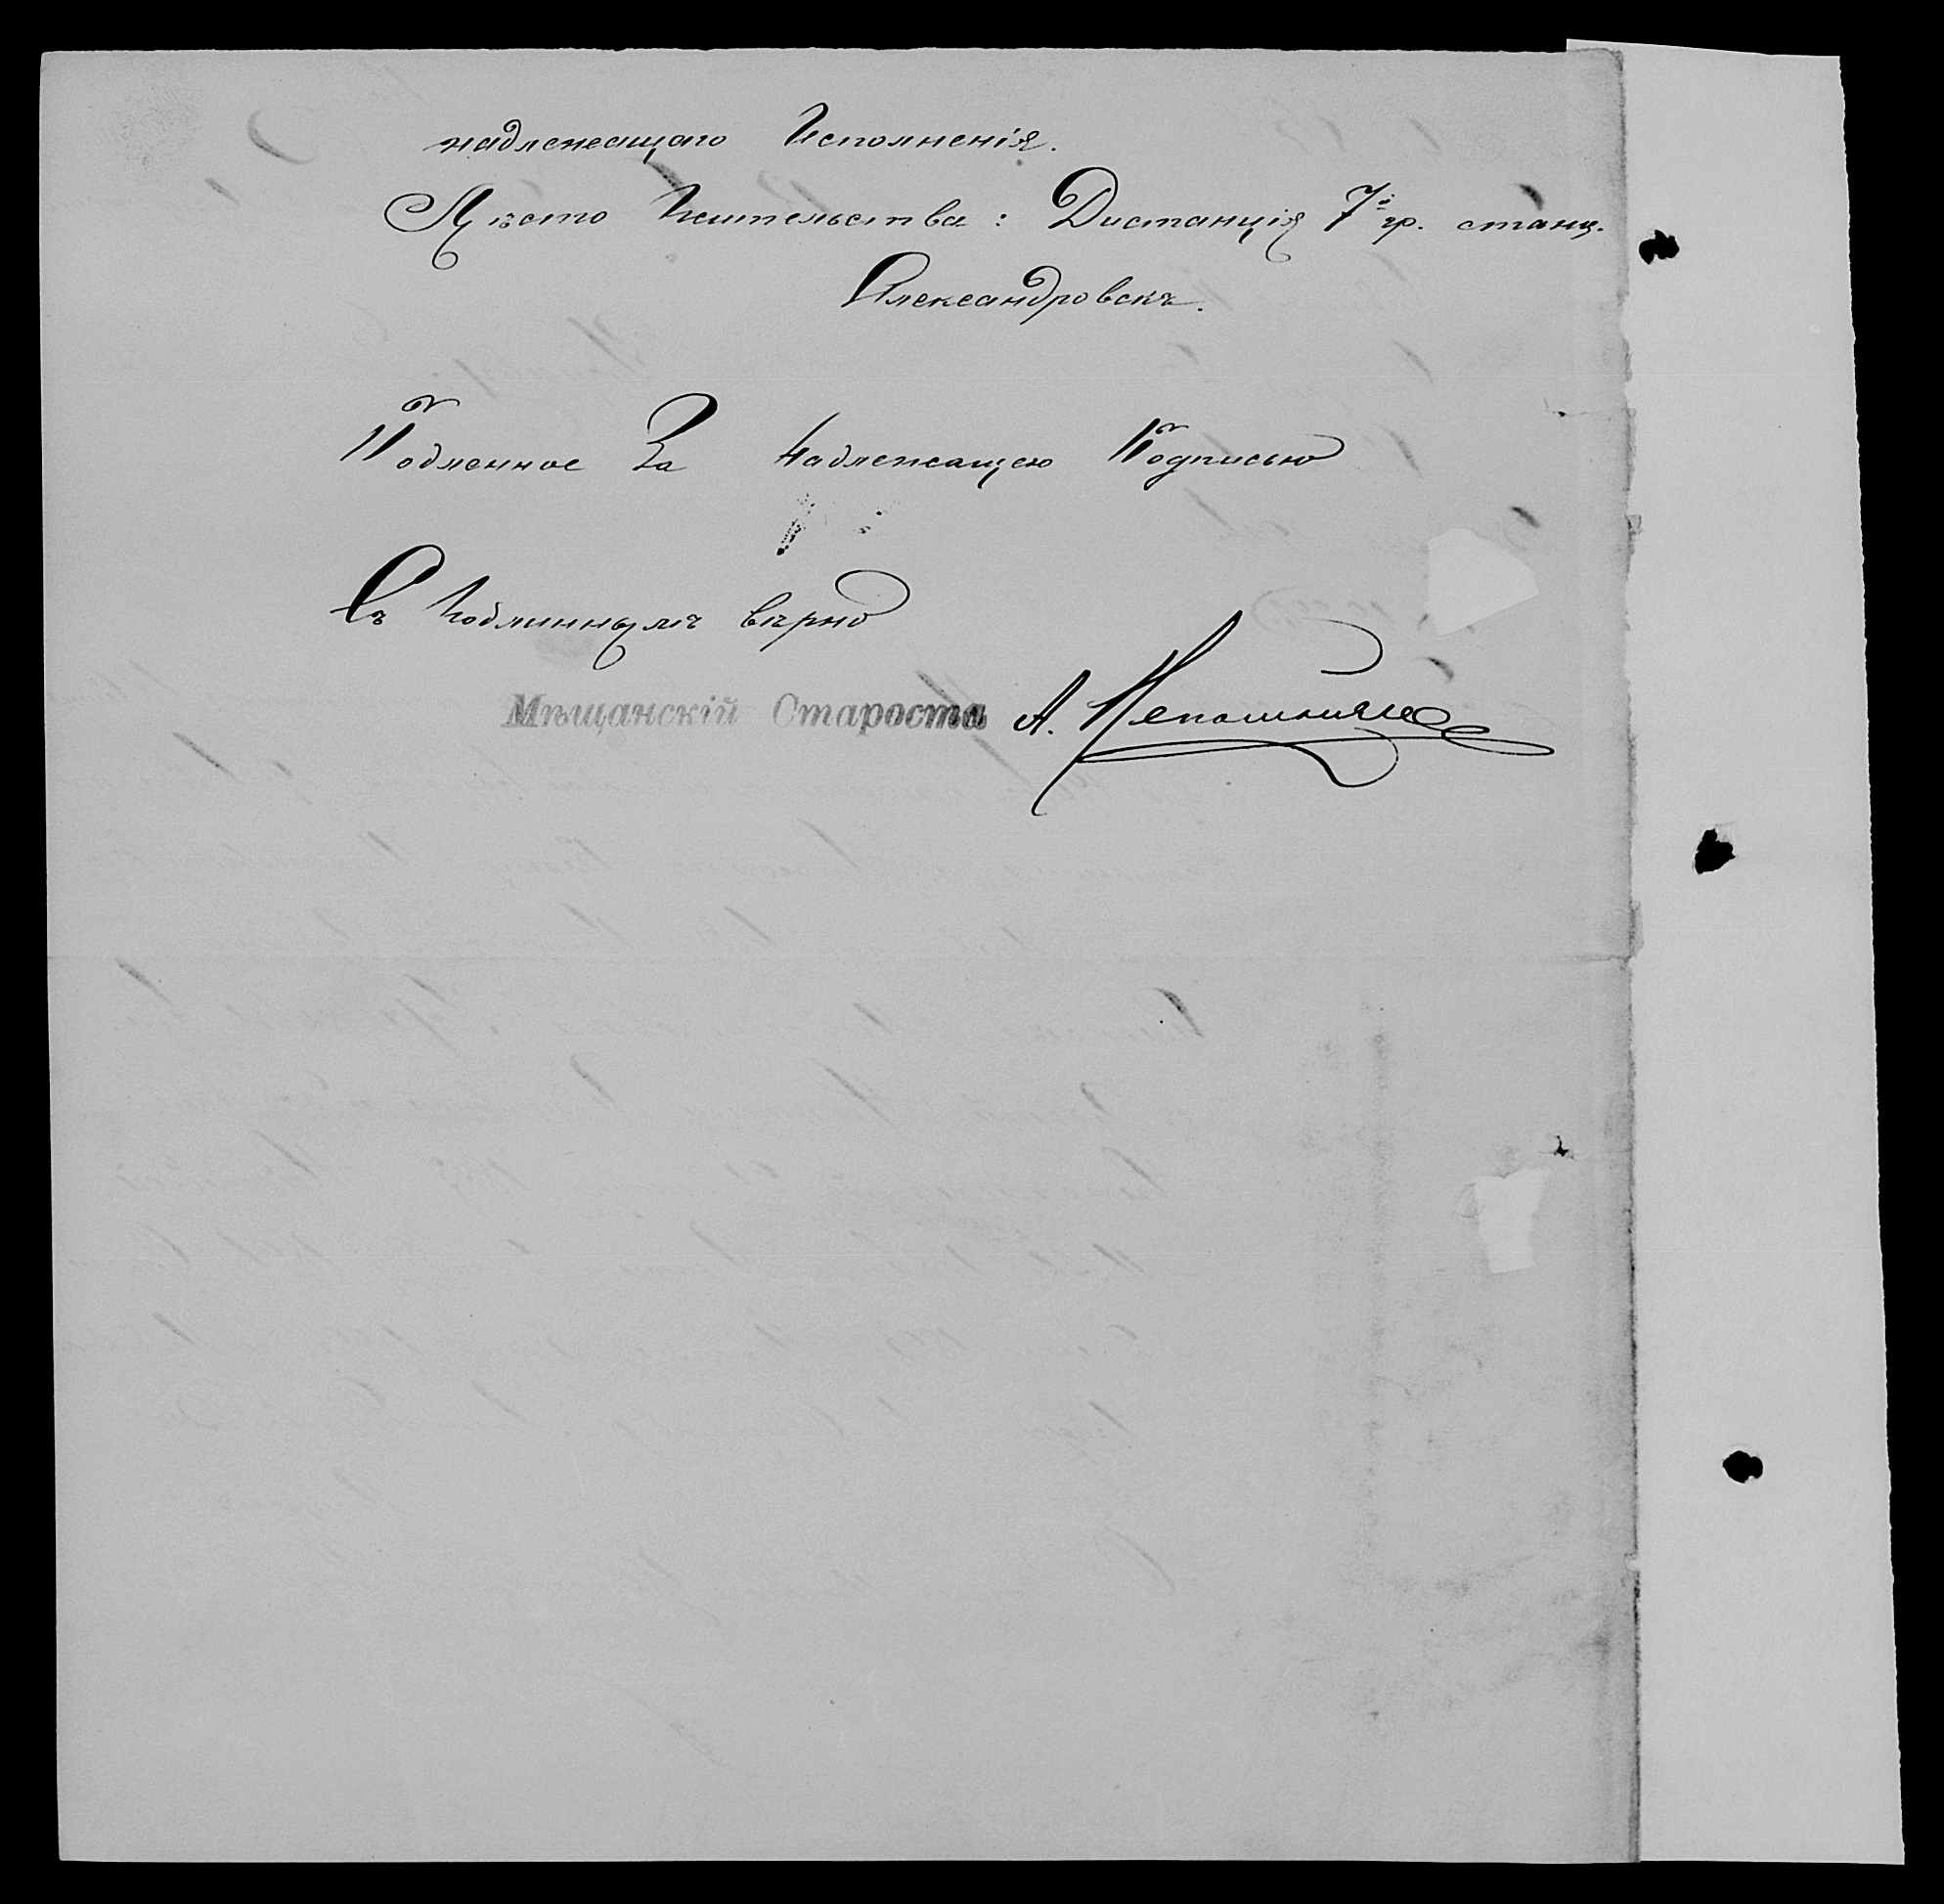 надлежащаго Исполненія.
Мѣсто Жительства: Дистанція 7й гр. станц.
Александровскъ.
Подленное За Надлежащею Подписью
Съ Подлиннымъ вѣрно
Мѣщанскій Староста А.